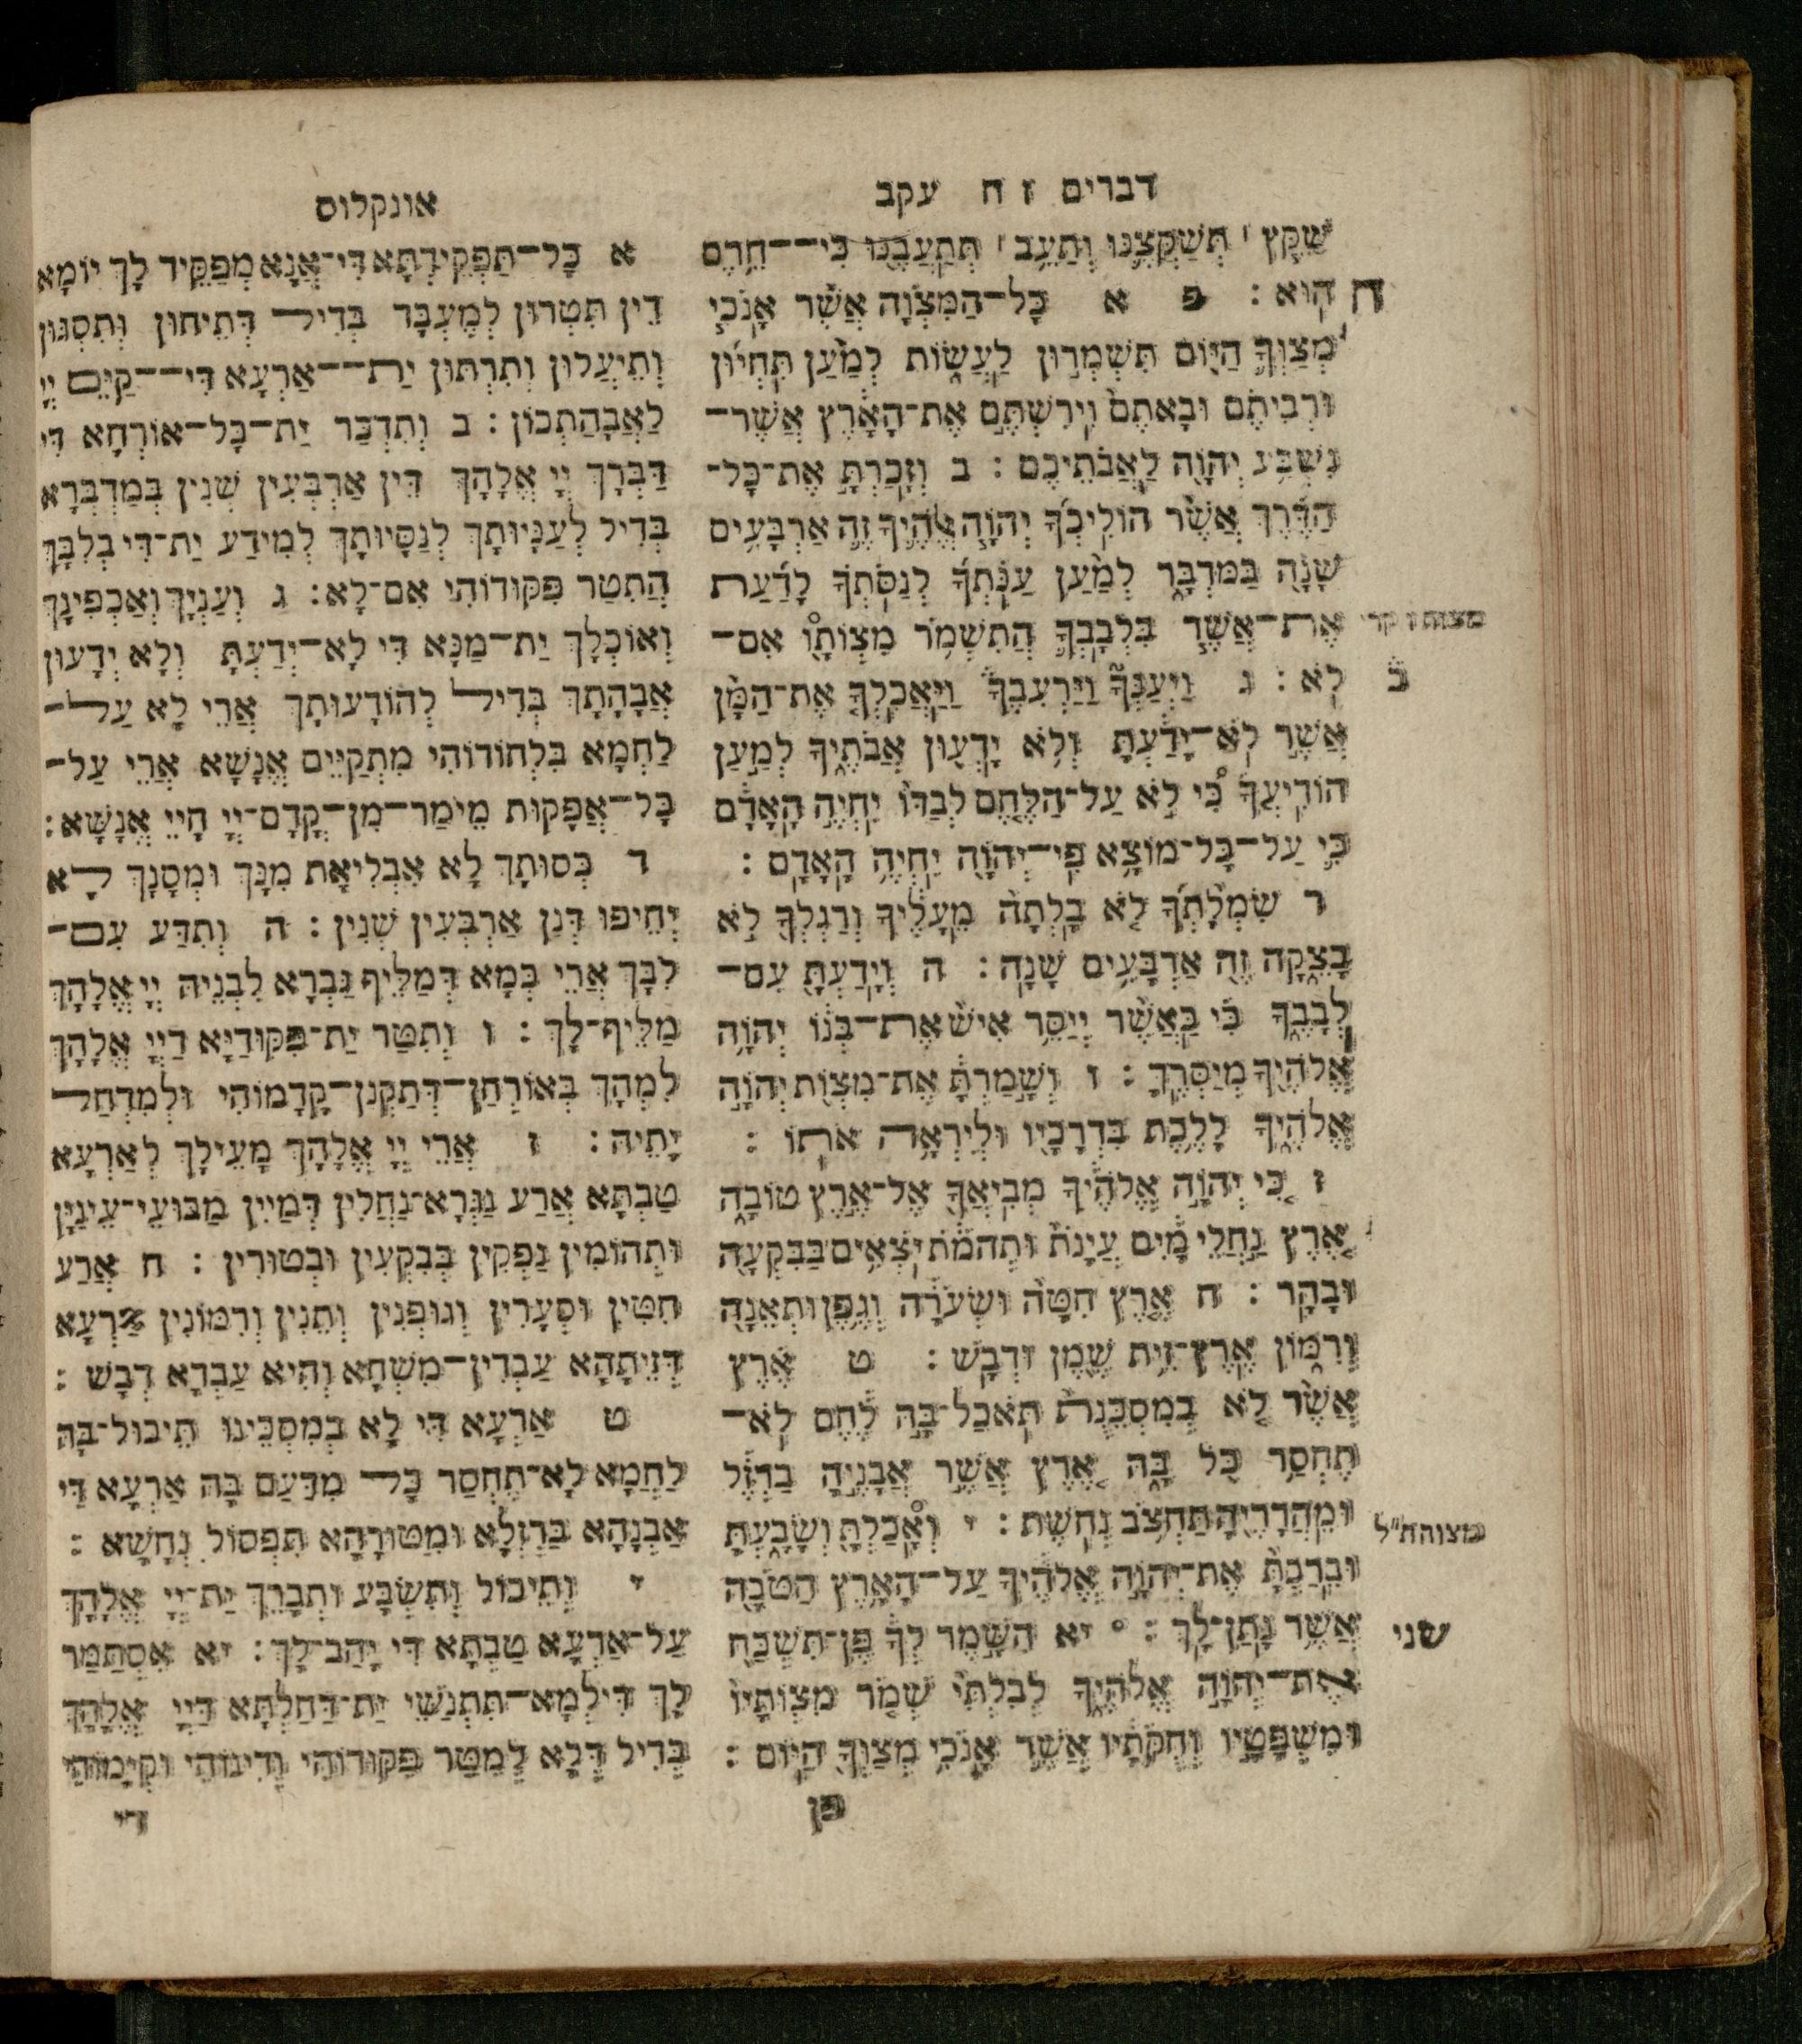 דברים ז ח עקב
שַׁקֵּץ ׀ תְּשַׁקְּצֶנּוּ וְתַעֵב ׀ תְּתַעֲבֶנּוּ כִּי־חֵרֶם
הוּא : פ א כָּל־הַמִּצְוָה אֲשֶׁר אָנֹכִי
ח
מְצַוְּךָ הַיּוֹם תִּשְׁמְרוּן לַעֲשׂוֹת לְמַעַן תִּחְיוּן
וּרְבִיתֶם וּבָאתֶם וִירִשְׁתֶּם אֶת־הָאָרֶץ אֲשֶׁר־
נִשְׁבַּע יְהוָה לַאֲבֹתֵיכֶם : ב וְזָכַרְתָּ אֶת־כָּל־
הַדֶּרֶךְ אֲשֶׁר הוֹלִיכְךָ יְהוָה אֱלֹהֶיךָ זֶה אַרְבָּעִים
שָׁנָה בַּמִּדְבָּר לְמַעַן עַנֹּתְךָ לְנַסֹּתְךָ לָדַעַת
אֶת־אֲשֶׁר בִּלְבָבְךָ הֲתִשְׁמֹר מִצְוֹתָו אִם־
מצותיו קרי
לֹא : ג וַיְעַנְּךָ וַיַּרְעִבֶךָ וַיַּאֲכִלְךָ אֶת־הַמָּן
ב
אֲשֶׁר לֹא־יָדַעְתָּ וְלֹא יָדְעוּן אֲבֹתֶיךָ לְמַעַן
הוֹדִיעֲךָ כִּי לֹא עַל־הַלֶּחֶם לְבַדּוֹ יִחְיֶה הָאָדָם
כִּי עַל־כָּל־מוֹצָא פִי־יְהוָה יִחְיֶה הָאָדָם :
ד שִׂמְלָתְךָ לֹא בָלְתָה מֵעָלֶיךָ וְרַגְלְךָ לֹא
בָצֵקָה זֶה אַרְבָּעִים שָׁנָה : ה וְיָדַעְתָּ עִם־
לְבָבֶךָ כִּי כַּאֲשֶׁר יְיַסֵּר אִישׁ אֶת־בְּנוֹ יְהוָה
אֱלֹהֶיךָ מְיַסְּרֶךָּ : ו וְשָׁמַרְתָּ אֶת־מִצְוֹת יְהוָה
אֱלֹהֶיךָ לָלֶכֶת בִּדְרָכָיו וּלְיִרְאָה אֹתוֹ :
ז כִּי יְהוָה אֱלֹהֶיךָ מְבִיאֲךָ אֶל־אֶרֶץ טוֹבָה
אֶרֶץ נַחֲלֵי מָיִם עֲיָנֹת וּתְהֹמֹת יֹצְאִים בַּבִּקְעָה
וּבָהָר : ח אֶרֶץ חִטָּה וּשְׂעֹרָה וְגֶפֶן וּתְאֵנָה
וְרִמּוֹן אֶרֶץ־זֵית שֶׁמֶן וּדְבָשׁ : ט אֶרֶץ
אֲשֶׁר לֹא בְמִסְכֵּנֻת תֹּאכַל־בָּהּ לֶחֶם לֹא־
תֶחְסַר כֹּל בָּהּ אֶרֶץ אֲשֶׁר אֲבָנֶיהָ בַרְזֶל
וּמֵהֲרָרֶיהָ תַּחְצֹב נְחֹשֶׁת : י וְאָכַלְתָּ וְשָׂבָעְתָּ
מצוהת״ל
וּבֵרַכְתָּ אֶת־יְהוָה אֱלֹהֶיךָ עַל־הָאָרֶץ הַטֹּבָה
אֲשֶׁר נָתַן־לָךְ : ° יא הִשָּׁמֶר לְךָ פֶּן־תִּשְׁכַּח
שני
אֶת־יְהוָה אֱלֹהֶיךָ לְבִלְתִּי שְׁמֹר מִצְוֹתָיו
וּמִשְׁפָּטָיו וְחֻקֹּתָיו אֲשֶׁר אָנֹכִי מְצַוְּךָ הַיּוֹם :
פן
אונקלוס
א כָּל־תַּפְקֵידְתָּא דִּי־אֲנָא מְפַקֵּיד לָךְ יוֹמָא
דֵין תִּטְרוּן לְמֶעְבָּד בְּדִיל דְּתֵיחוּן וְתִסְגּוּן
וְתֵיעֲלוּן וְתִרְתוּן יַת־אַרְעָא דִּי־קַיֵּם יְיָ
לַאֲבָהַתְכוֹן : ב וְתִדְכַּר יַת־כָּל־אוֹרְחָא דִּי
דַּבְּרָךְ יְיָ אֱלָהָךְ דֵּין אַרְבְּעִין שְׁנִין בְּמַדְבְּרָא
בְּדִיל לְעַנָּיוּתָךְ לְנַסָּיוּתָךְ לְמִידַע יַת־דִּי בְלִבָּךְ
הֲתִטַּר פִּקּוּדוֹהִי אִם־לָא : ג וְעַנְיָךְ וְאַכְפִינָךְ
וְאוֹכְלָךְ יַת־מַנָּא דִּי לָא־יְדַעְתָּ וְלָא יְדָעוּן
אֲבָהָתָךְ בְּדִיל לְהוֹדָעוּתָךְ אֲרֵי לָא עַל־
לַחְמָא בִּלְחוֹדוֹהִי מִתְקַיֵּים אֱנָשָׁא אֲרֵי עַל־
כָּל־אֲפָקוּת מֵימַר־מִן־קֳדָם־יְיָ חָיֵי אֱנָשָׁא :
ד כְּסוּתָךְ לָא אִבְלִיאַת מִנָּךְ וּמְסָנָךְ לָא
יְחֵיפוּ דְּנַן אַרְבְּעִין שְׁנִין : ה וְתִדַּע עִם־
לִבָּךְ אֲרֵי כְּמָא דְּמַלֵּיף גַּבְרָא לִבְנֵיהּ יְיָ אֱלָהָךְ
מַלֵּיף־לָךְ : ו וְתִטַּר יַת־פִּקּוּדַיָּא דַיְיָ אֱלָהָךְ
לִמְהָךְ בְּאוֹרְחַן־דְּתַקְנַן־קֳדָמוֹהִי וּלְמִדְחַל
יָתֵיהּ : ז אֲרֵי יְיָ אֱלָהָךְ מָעֵילָךְ לְאַרְעָא
טַבְתָּא אֲרַע נַגְּרָא־נַחֲלִין דְּמַיִין מַבּוּעֵי־עֵינָיָן
וּתְהוֹמִין נָפְקִין בְּבִקְעִין וּבְטוּרִין : ח אֲרַע
חִטִּין וּסְעָרִין וְגוּפְנִין וְתֵנִין וְרִמּוֹנִין אַרְעָא
דְּזֵיתָהָא עַבְדִין־מִשְׁחָא וְהִיא עַבְדָא דְבָשׁ :
ט אַרְעָא דִּי לָא בְמִסְכֵּינוּ תֵיכוּל־בָּהּ
לַחְמָא לָא־תֶחְסַר כָּל מִדַּעַם בָּהּ אַרְעָא דִּי
אַבְנָהָא בַּרְזְלָא וּמִטּוּרָהָא תִּפְסוֹל נְחָשָׁא :
י וְתֵיכוֹל וְתִשְׂבָּע וּתְבָרֵךְ יַת־יְיָ אֱלָהָךְ
עַל־אַרְעָא טַבְתָא דִּי יָהַב־לָךְ : יא אִסְתַּמַּר
לָךְ דִּילְמָא־תִּתְנְשֵׁי יַת־דַּחַלְתָּא דַיְיָ אֱלָהָךְ
בְּדִיל דְּלָא לְמִטַּר פִּקּוּדוֹהִי וְדִינוֹהִי וּקְיָמוֹהִי
די